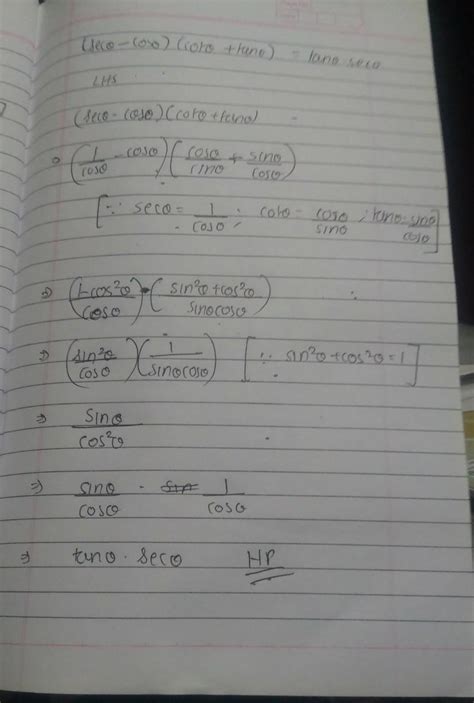 (secθ - cosθ) (cotθ + tanθ) = tanθ secθ
LHS
(secθ - cosθ) (cotθ + tanθ)
⇒ (1/cosθ - cosθ) (cosθ/sinθ + sinθ/cosθ)
[∵ secθ = 1/cosθ ; cotθ = cosθ/sinθ ; tanθ = sinθ/cosθ]
⇒ (1-cos²θ/cosθ) · (sin²θ + cos²θ/sinθcosθ)
⇒ (sin²θ/cosθ) (1/sinθcosθ) [∵ sin²θ + cos²θ = 1]
⇒ sinθ/cos²θ
⇒ sinθ/cosθ · 1/cosθ
⇒ tanθ · secθ HP